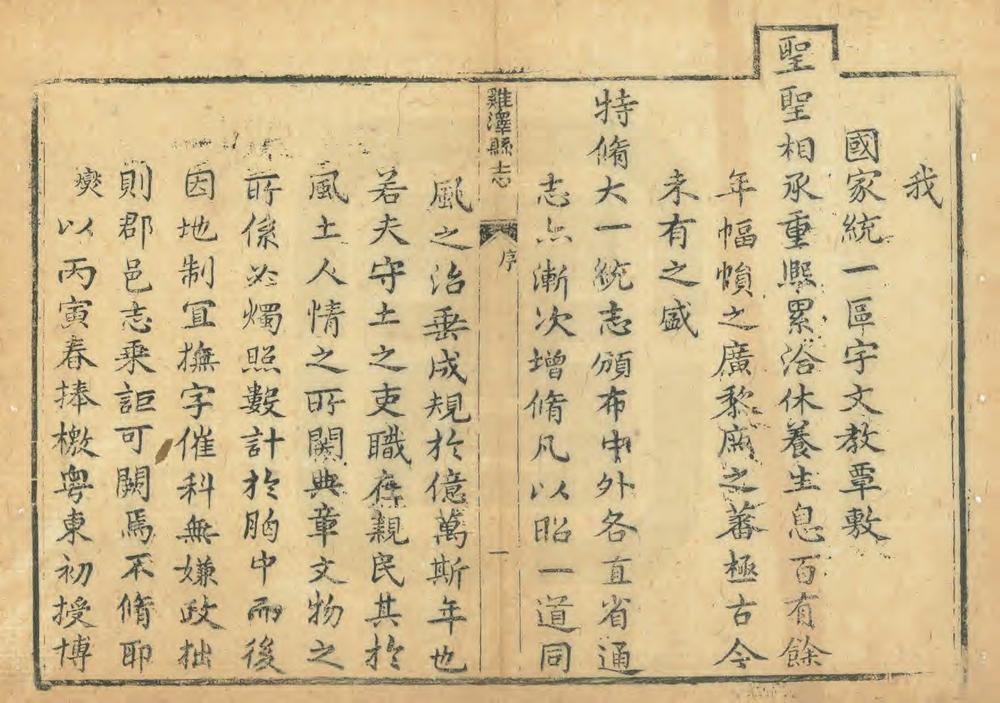 我
國家統一區宇文教覃敷
聖聖相承重熙累洽休養生息百有餘
年幅幀之廣黎庶之蕃極古今
未有之盛
特脩大一統志頒布中外各直省通
志亦漸次增脩凡以昭一道同
雞澤縣志
序
一
風之治垂成規於億萬斯年也
若夫守土之吏職在親民其於
風土人情之所關典章文物之
所係必燭照數計於胸中而後
因地制宜撫字催科無嫌政拙
則郡邑志乘詎可闕焉不脩耶
燮以丙寅春捧檄粵東初授博